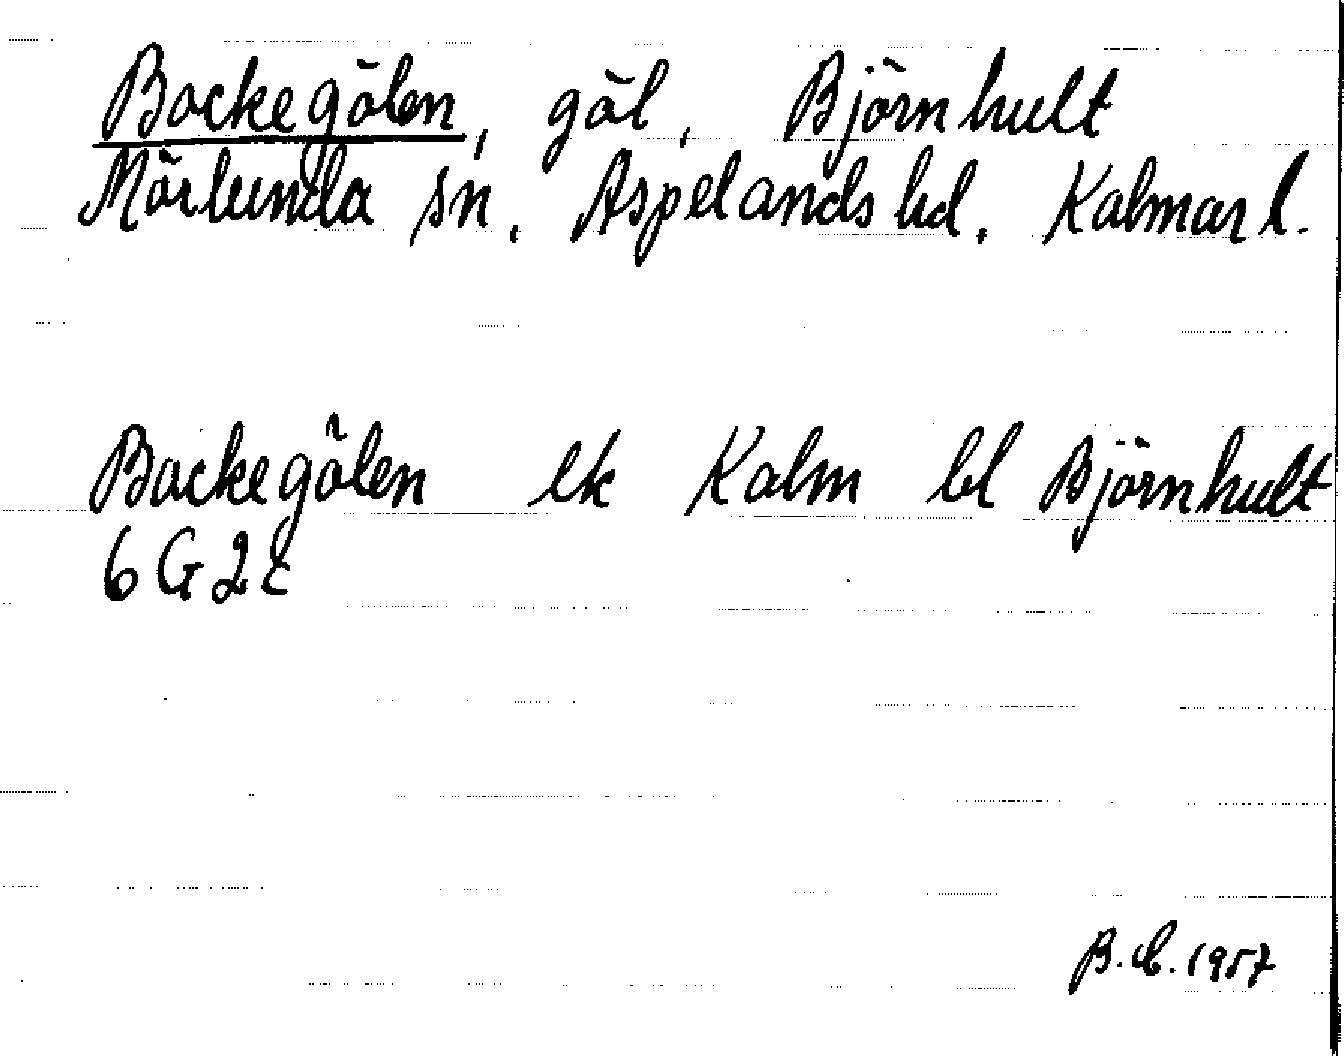 Bockegölen, göl, Björnhult
Mörlunda sn, Aspelands hd, Kalmar l.
Bockegölen ek Kalm bl Björnhult
6G2c
B.E. 1957